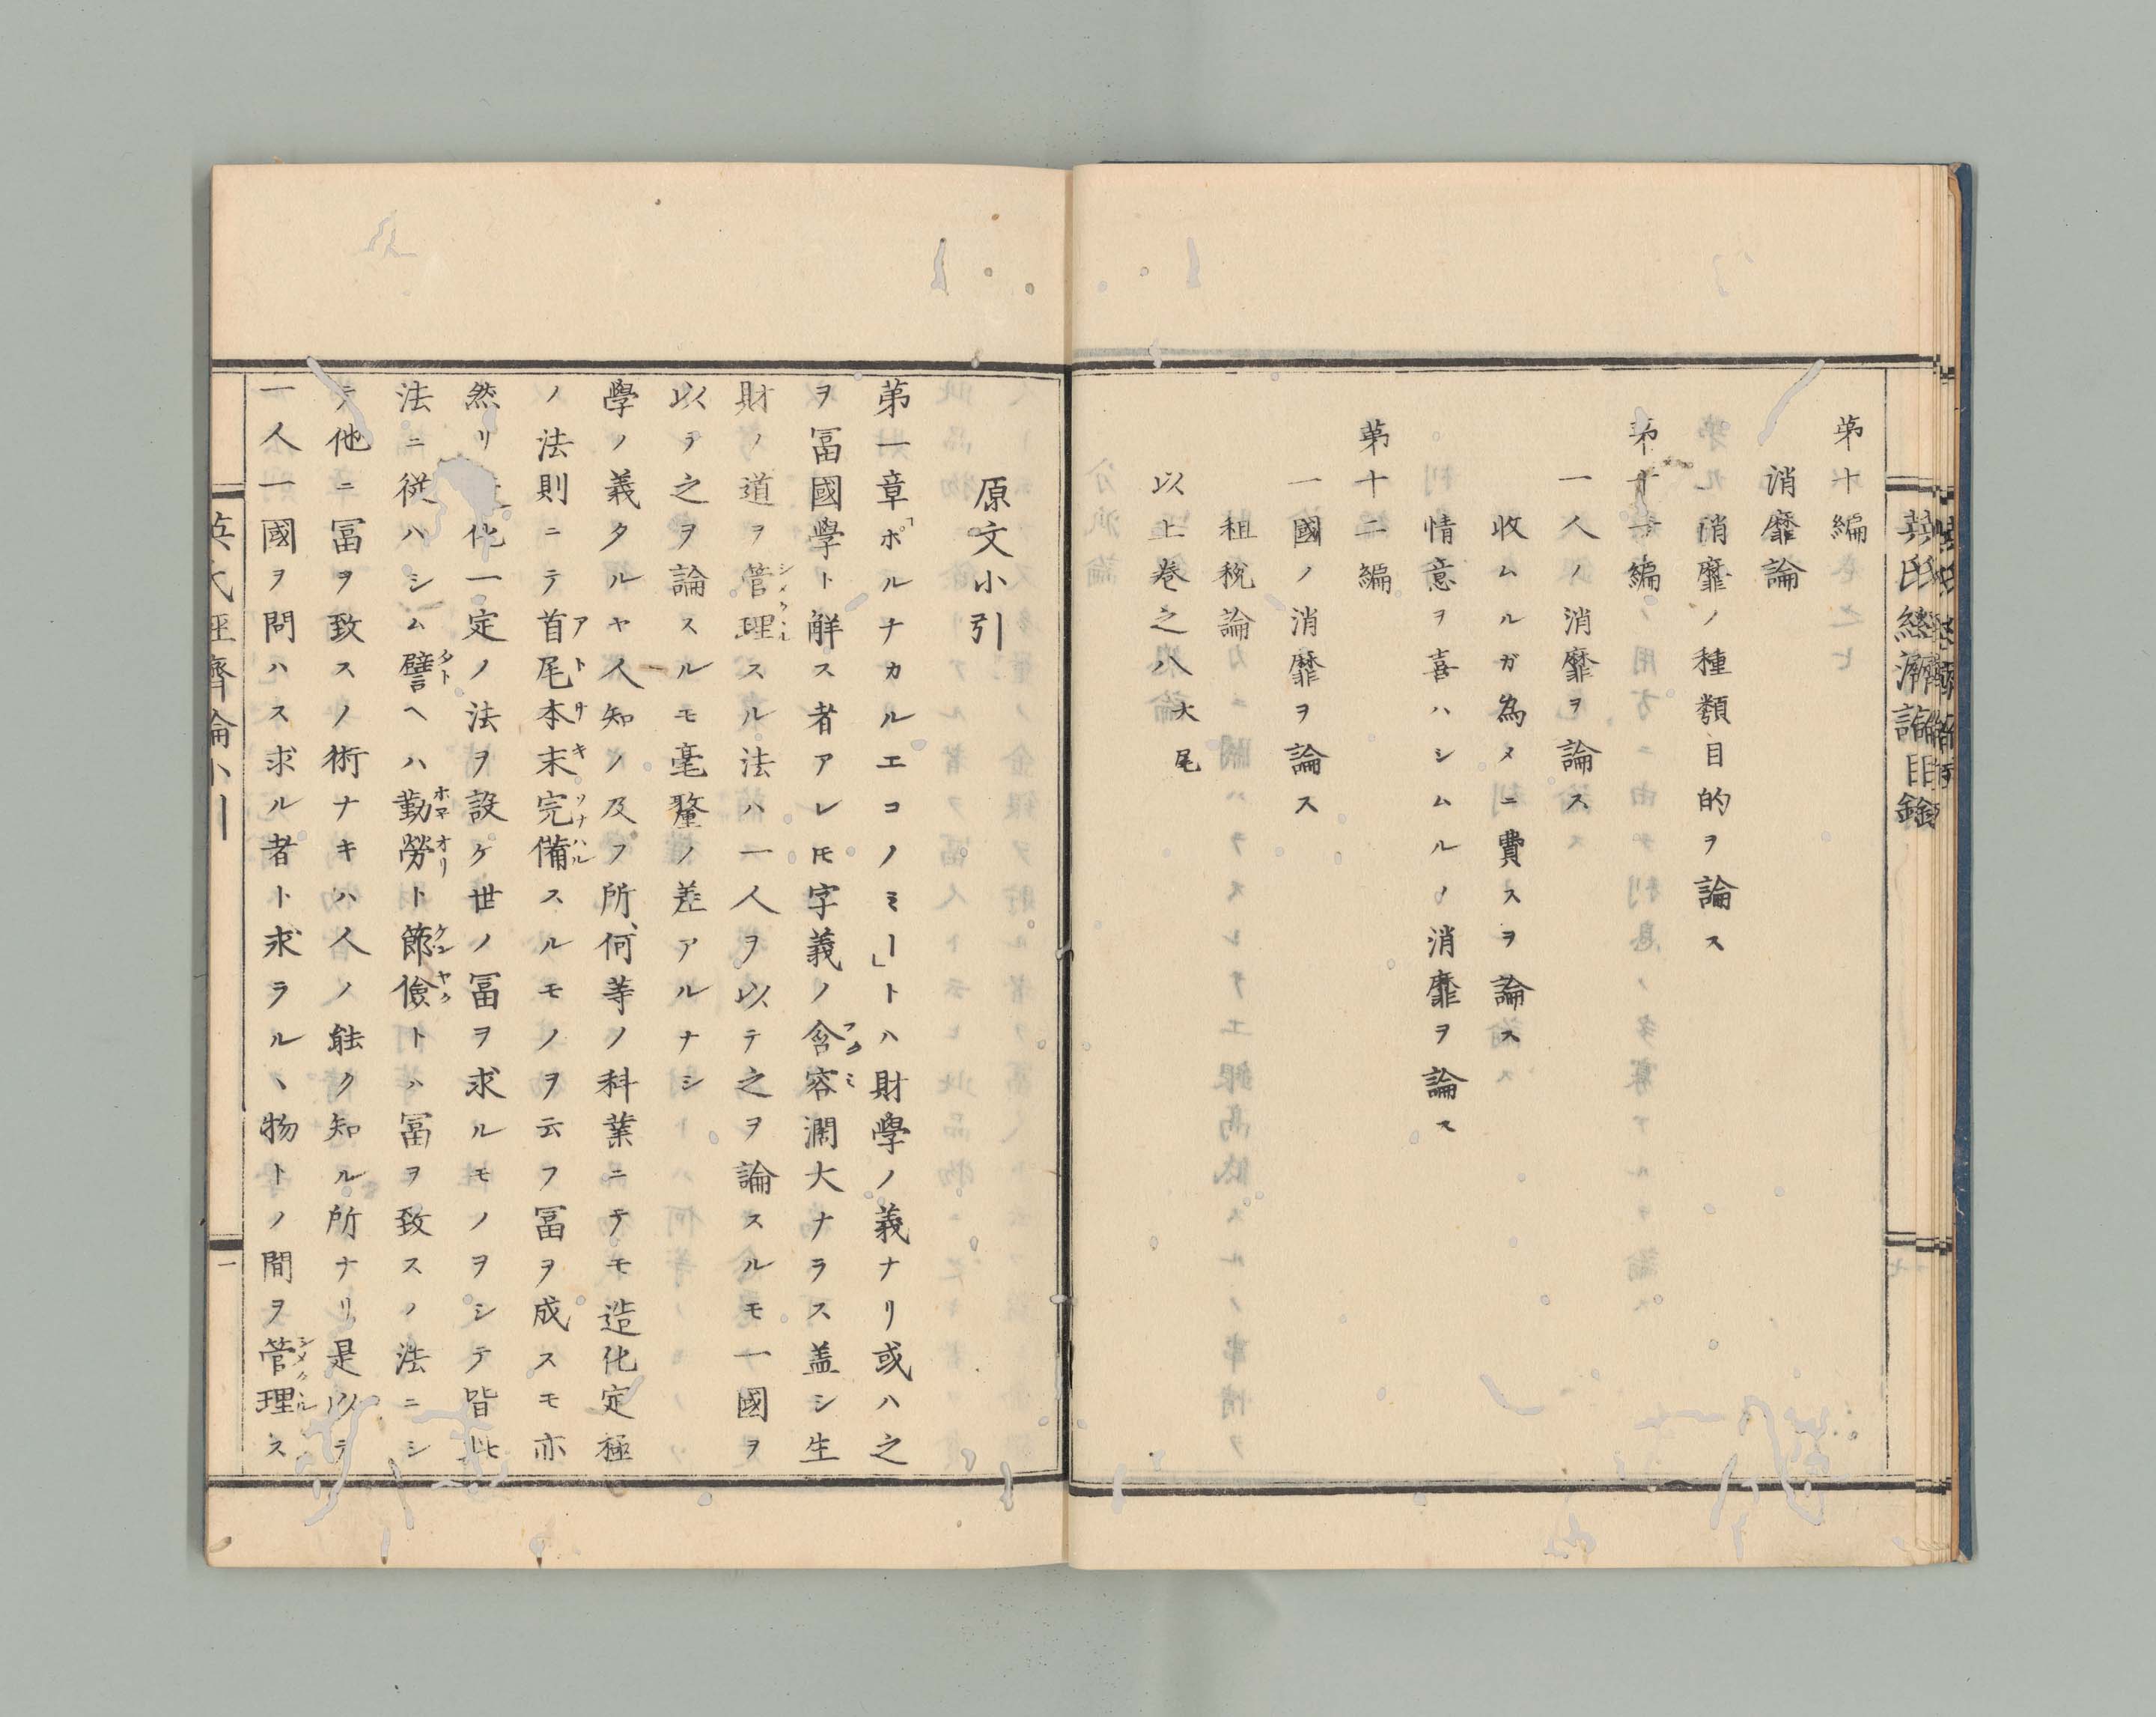 英氏經濟論目錄
第十編
消靡論
消靡ノ種類目的ヲ論ス
第十一編
一人ノ消靡ヲ論ス
收ムルガ為メニ費スヲ論ス
情意ヲ喜ハシムルノ消靡ヲ論ス
第十二編
一國ノ消靡ヲ論ス
租稅論
以上卷之八大尾
原文小引
第一章「ポルナカルエコノミー」トハ財學ノ義ナリ或ハ之
ヲ冨國學ト解ス者アレ𪜈字義ノ含容濶大ナラス盖シ生
財ノ道ヲ管理スル法ハ一人ヲ以テ之ヲ論スルモ一國ヲ
以テ之ヲ論スルモ毫釐ノ差アルナシ
學ノ義タルヤ人知ノ及フ所、何等ノ科業ニテモ造化定極
ノ法則ニテ首尾本末完備スルモノヲ云フ冨ヲ成スモ亦
然リ化一定ノ法ヲ設ケ世ノ冨ヲ求ルモノヲシテ皆此
法ニ從ハシム譬ヘハ勤勞ト節儉トハ冨ヲ致スノ法ニシ
テ他ニ冨ヲ致スノ術ナキハ人ノ能ク知ル所ナリ是以テ
一人一國ヲ問ハス求ル者ト求ラルヽ物トノ間ヲ管理ス
英氏經濟論小引
一